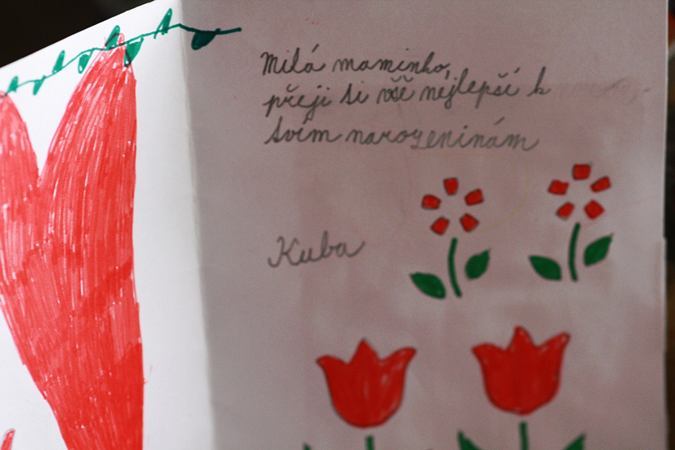 Milá maminko,
přeji ti vše nejlepší k
tvím narozeninám
Kuba